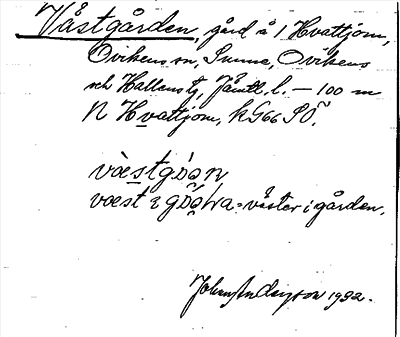 Västgården, gård å 1 Hvattjom,
Ovikens sn, Sunne, Ovikens
och Hallens tg, Jämtl. l. — 100 m
N Hvattjom, k G66 SÖ.
västgó̀ạn
væst i gö̀ạra: väster i gården.
Johan Anderson 1932.